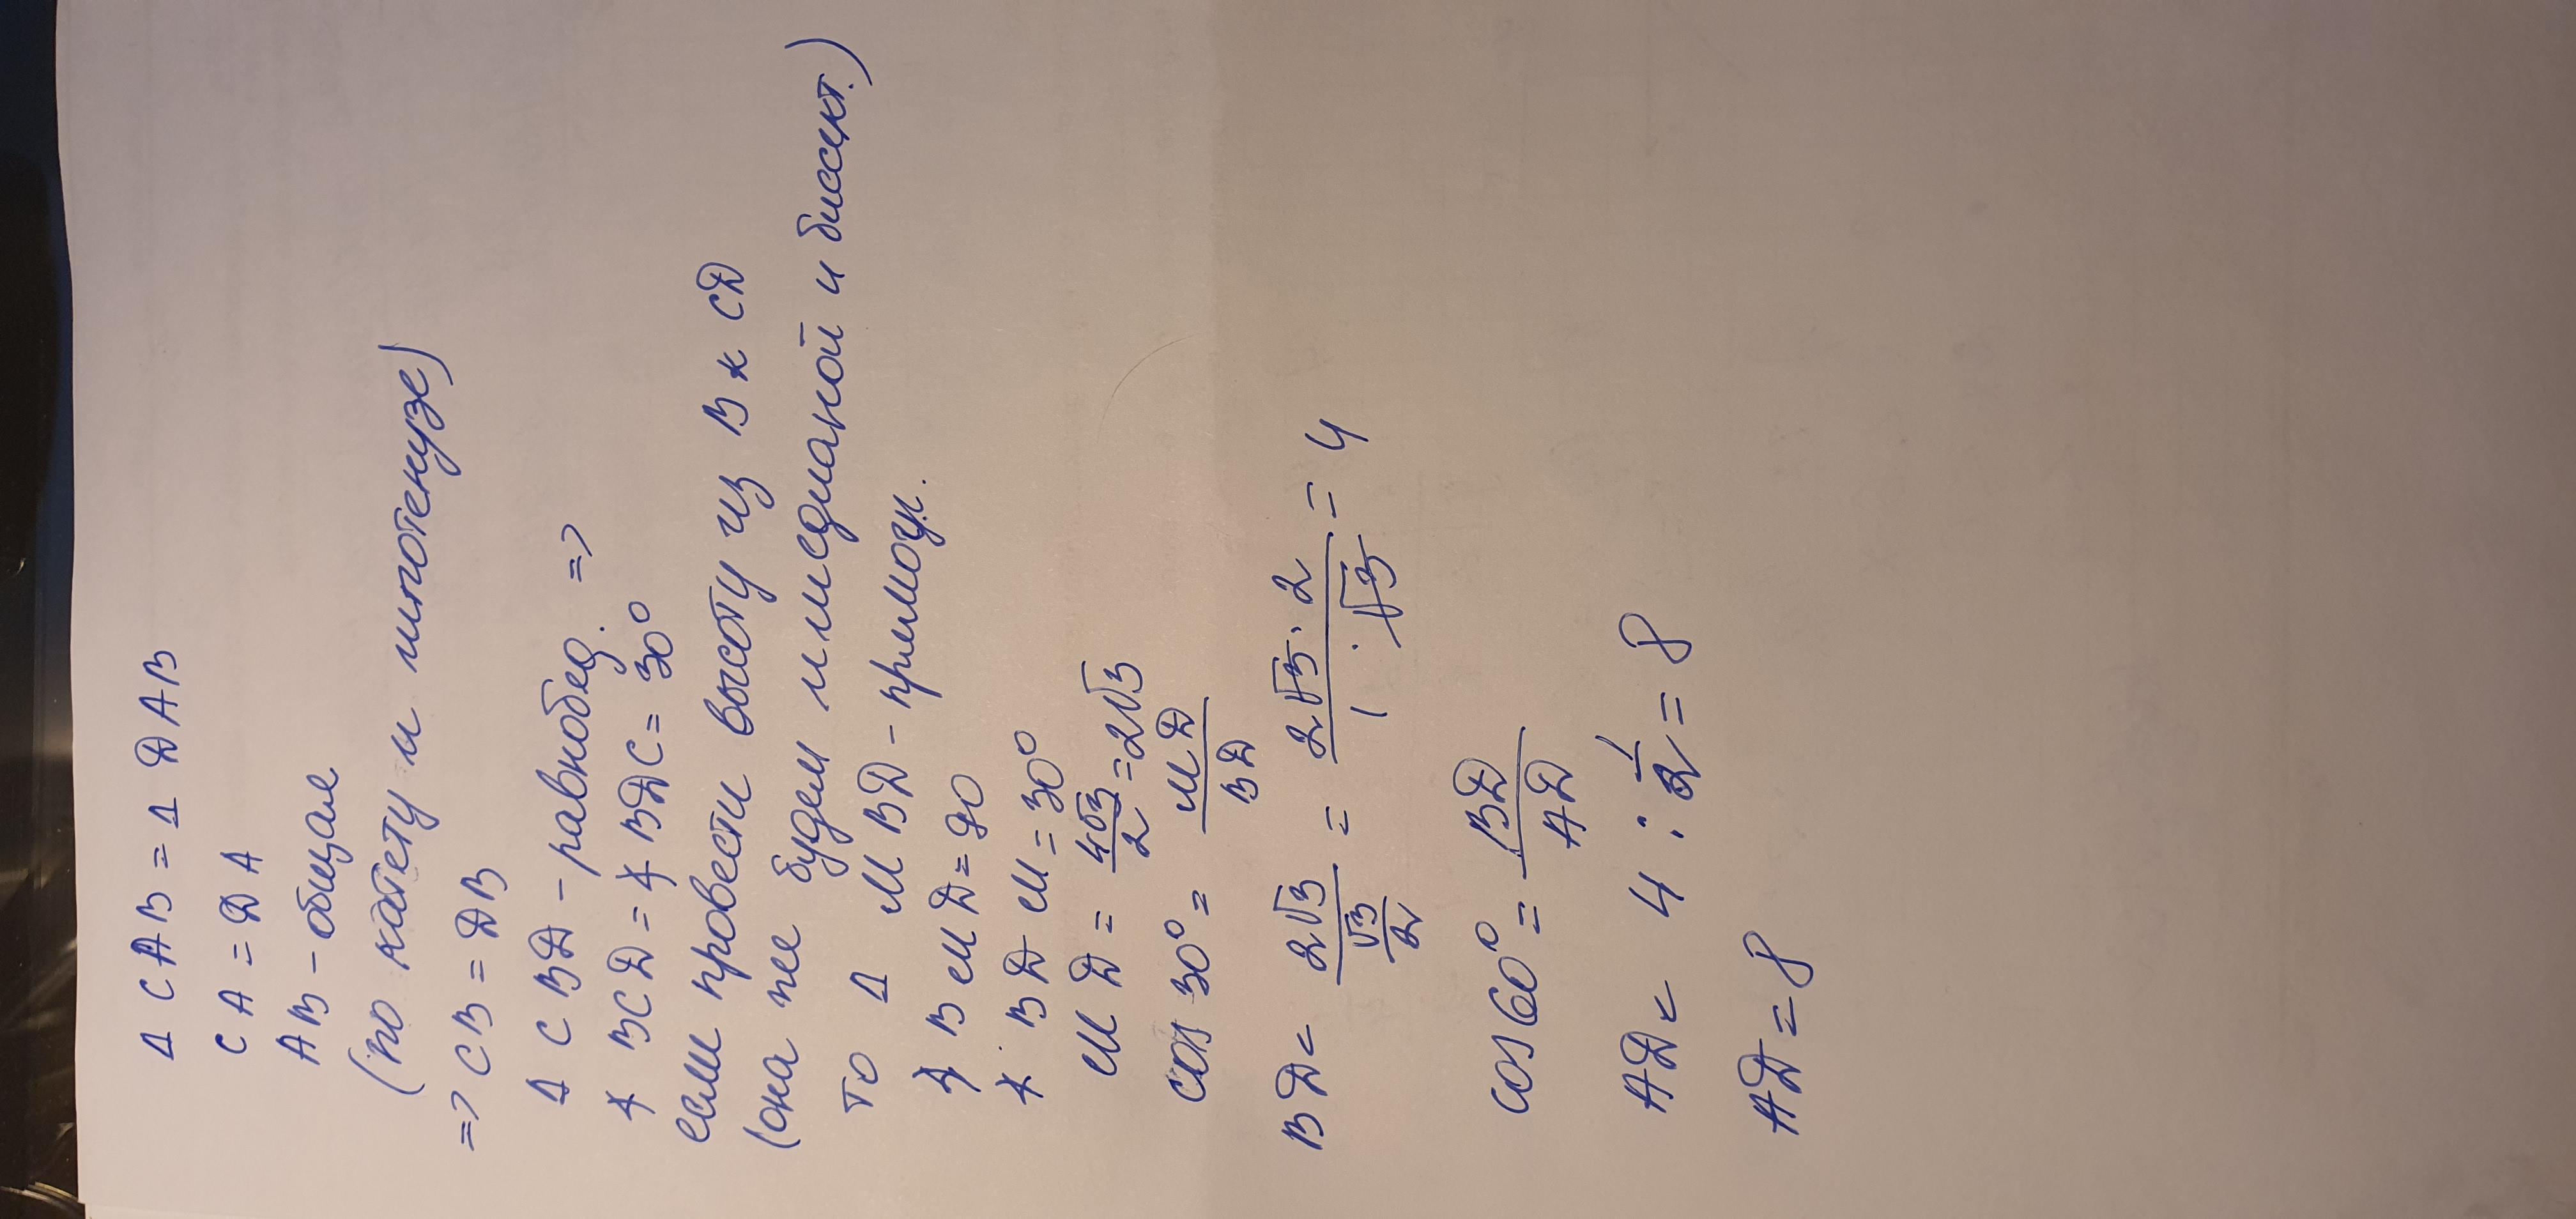 Δ CAB = Δ DAB
CA = DA
AB - общая
(по катету и гипотенузе)
=> CB = DB
Δ CBD - равнобед. =>
∡ BCD = ∡ BDC = 30°
если провести высоту из B к CD
(она же будет и медианой и биссект.)
то Δ MBD - прямоуг.
∡ BMD = 90
∡ BDM = 30°
MD = 4√3/2 = 2√3
cos 30° = MD/BD
BD = 2√3/(√3/2) = 2√3·2/1·√3 = 4
cos 60° = BD/AD
AD = 4 : 1/2 = 8
AD = 8